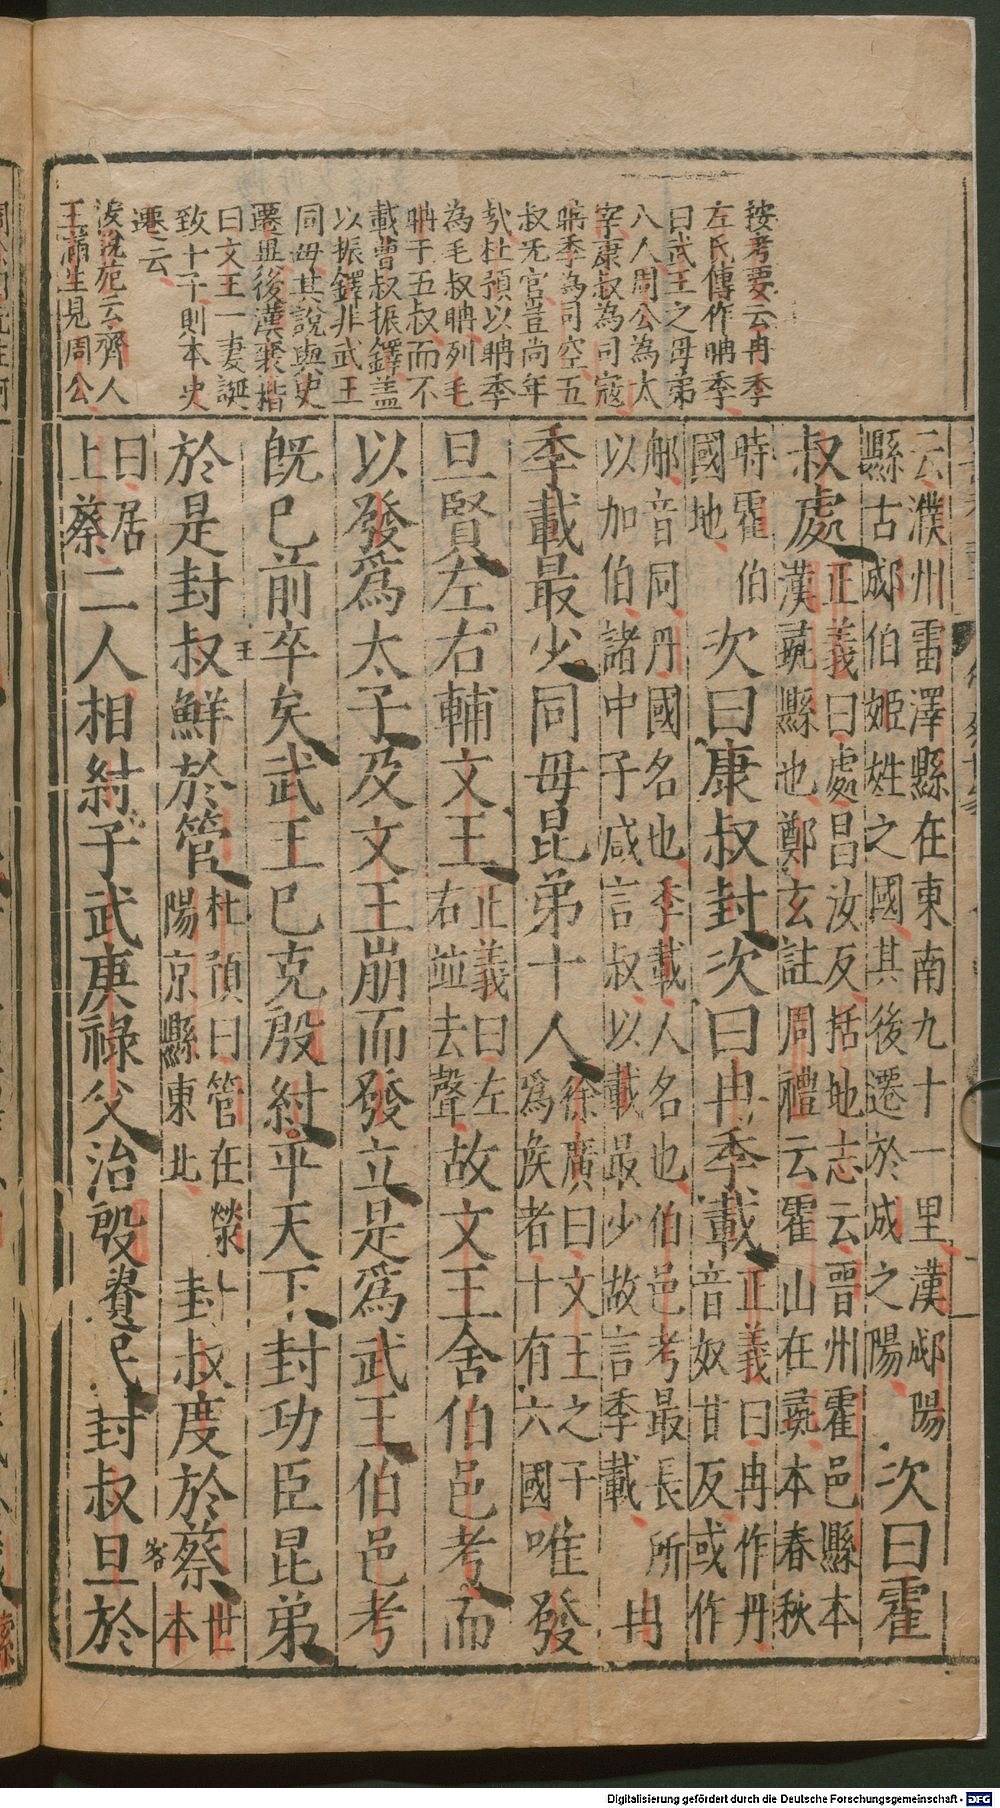 按考要云冉季
左氏傳作聃季
曰武王之母弟
八人周公為太
宰康叔為司寇
聃季為司空五
叔无官豈尚年
㢤杜預以聃季
為毛叔聃列毛
聃于五叔而不
載曹叔振鐸盖
以振鐸非武王
同母其說與史
遷異後漢襄楷
曰文王一妻誕
致十子則本史
遷云
淩說苑云齊人
王滿生見周公
云濮州雷澤縣在東南九十一里漢郕陽
縣古郕伯姬姓之國其後遷於成之陽
次曰霍
叔處
正義曰處昌汝反括地志云晉州霍邑縣本
漢彘縣也鄭玄註周禮云霍山在彘本春秋
時霍伯
國地
次曰康叔封次曰冉季載
正義曰冉作丹
音奴甘反或作
郍音同丹國名也季載人名也伯邑考最長所
以加伯諸中子咸言叔以載最少故言季載
冉
季載最少同母昆弟十人
徐廣曰文王之子
為侯者十有六國
唯發
旦賢左右輔文王
正義曰左
右並去聲
故文王舍伯邑考而
以發爲太子及文王崩而發立是爲武王伯邑考
旣已前卒矣武王已克殷紂平天下封功臣昆弟
於是封叔鮮於管
杜預曰管在滎
陽京縣東北
封叔度於蔡
世
本
曰居
上蔡
二人相紂子武庚祿父治殷遺民封叔旦於
Digitalisierung gefördert durch die Deutsche Forschungsgemeinschaft - DFG